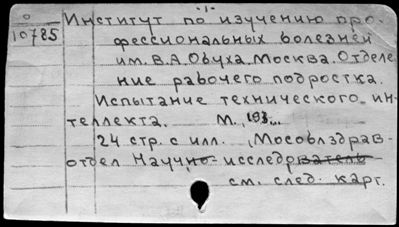 - 1 -
О Институт по изучению про-
10785 фессиональных болезней
им. В.А. Обуха. Москва. Отделе-
ние рабочего подростка.
Испытание технического ин-
теллекта. М., 193...
24 стр. с илл. Мособлздрав-
отдел Научно-исследователь
см. след. карт.